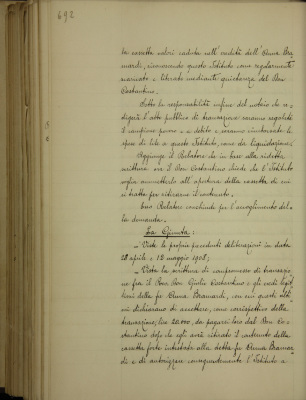 692
la cassetta valori caduta nell'eredità dell'Anna Bra
mardi, riconoscendo questo Istituto come regolarmente
scaricato e liberato mediante quietanza del Bon
Costantino.
Sotto la responsabilità infine del notaio che re
digerà l'atto pubblico di transazione saranno regolati
le spese di lite a questo Istituto, come da liquidazione.
Aggiunge il Relatore che in base alla ridetta
scrittura ora il Bon Costantino chiede che l'Istituto
voglia annettere all'apertura della cassetta di cui
si tratta per ritirarne il contenuto.
Esso Relatore conchiude per l'accoglimento del
la domanda.
La Giunta:
„ Viste le proprie precedenti deliberazioni in data
28 aprile e 12 maggio 1908;
„ Vista la scrittura di compromesso di transazio
ne fra il Bon Giulio Costantino e gli eredi legit
timi della fu Anna Bramardi, con cui questi ulti
mi dichiarano di accettare, come corrispettivo della
transazione, lire 20.000, da pagarsi loro dal Bon Co-
stantino dopo che egli avrà ritirato il contenuto della
cassetta forte intestata alla detta fu Anna Bramar
di e di autorizzare conseguentemente l'Istituto a